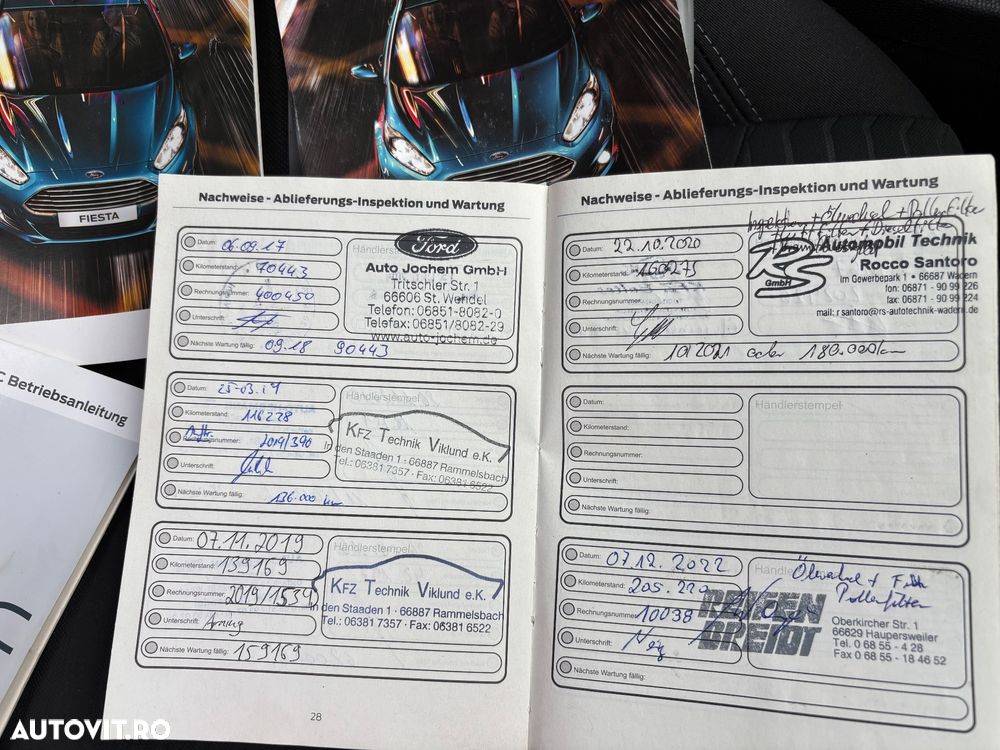 FIESTA
C Betriebsanleitung
Nachweise - Ablieferungs-Inspektion und Wartung
Datum: 06.09.17
Kilometerstand: 70443
Rechnungsnummer: 400450
Unterschrift:
Nächste Wartung fällig: 09.18 90443
Händlerstempel
Ford
Auto Jochem GmbH
Tritschler Str. 1
66606 St. Wendel
Telefon: 06851-8082-0
Telefax: 06851/8082-29
www.auto-jochem.de
Datum: 25.03.19
Kilometerstand: 116228
Rechnungsnummer: 2019/390
Unterschrift:
Nächste Wartung fällig: 136.000 km
Händlerstempel
KFZ Technik Viklund e.K.
In den Staaden 1 · 66887 Rammelsbach
Tel.: 06381 7357 · Fax: 06381 6522
Datum: 07.11.2019
Kilometerstand: 139169
Rechnungsnummer: 2019/1534
Unterschrift:
Nächste Wartung fällig: 159169
Händlerstempel
KFZ Technik Viklund e.K.
In den Staaden 1 · 66887 Rammelsbach
Tel.: 06381 7357 · Fax: 06381 6522
28
Nachweise - Ablieferungs-Inspektion und Wartung
+ Ölwechsel + Pollenfilter
Datum: 22.10.2020
Kilometerstand: 160275
Rechnungsnummer:
Unterschrift:
Nächste Wartung fällig: 10/2021 oder 180.000km
RS
GmbH
Automobil Technik
Rocco Santoro
Im Gewerbepark 1 • 66687 Wadern
fon: 06871 - 90 99 226
fax: 06871 - 90 99 224
mail: r santoro@rs-autotechnik-wadern.de
Datum:
Kilometerstand:
Rechnungsnummer:
Unterschrift:
Nächste Wartung fällig:
Händlerstempel
Datum: 07.12.2022
Kilometerstand: 205.220
Rechnungsnummer: 10038
Unterschrift:
Nächste Wartung fällig:
Ölwechsel + Filter
Pollenfilter
REIFEN
BREIDT
Oberkircher Str. 1
66629 Haupersweiler
Tel. 0 68 55 - 4 28
Fax 0 68 55 - 18 46 52
AUTOVIT.RO